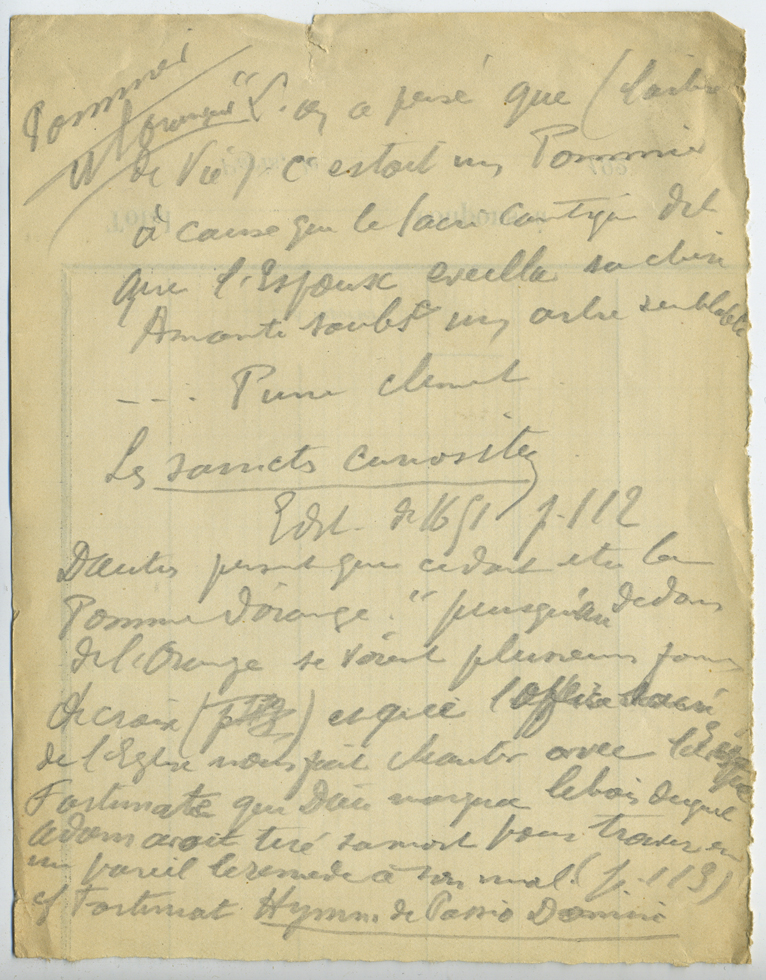 Pommier
Oranger
"L'on a pensé que (l'arbre
de Vie) c'estoit un Pommier
à cause que le sacré Cantique dit
que l'Espoux eveilla sa chère
Amante soubs un arbre semblable
--- Pierre
Les saincts curiosites
Edit. de 1651 p. 112
D'autres pensent que ce doit etre la
Pomme d'orange. "puisqu'au dedans
de l'Orange se voient plusieurs formes
de croix et que l'Office sacré
de l'Eglise nous fait chanter avec
Fortunate que Dieu marqua le bois duquel
adam avoit tiré sa mort pour trouver en
un pareil le remede à son mal. (p. 113)
cf Fortunat Hymn. de Passio Domini